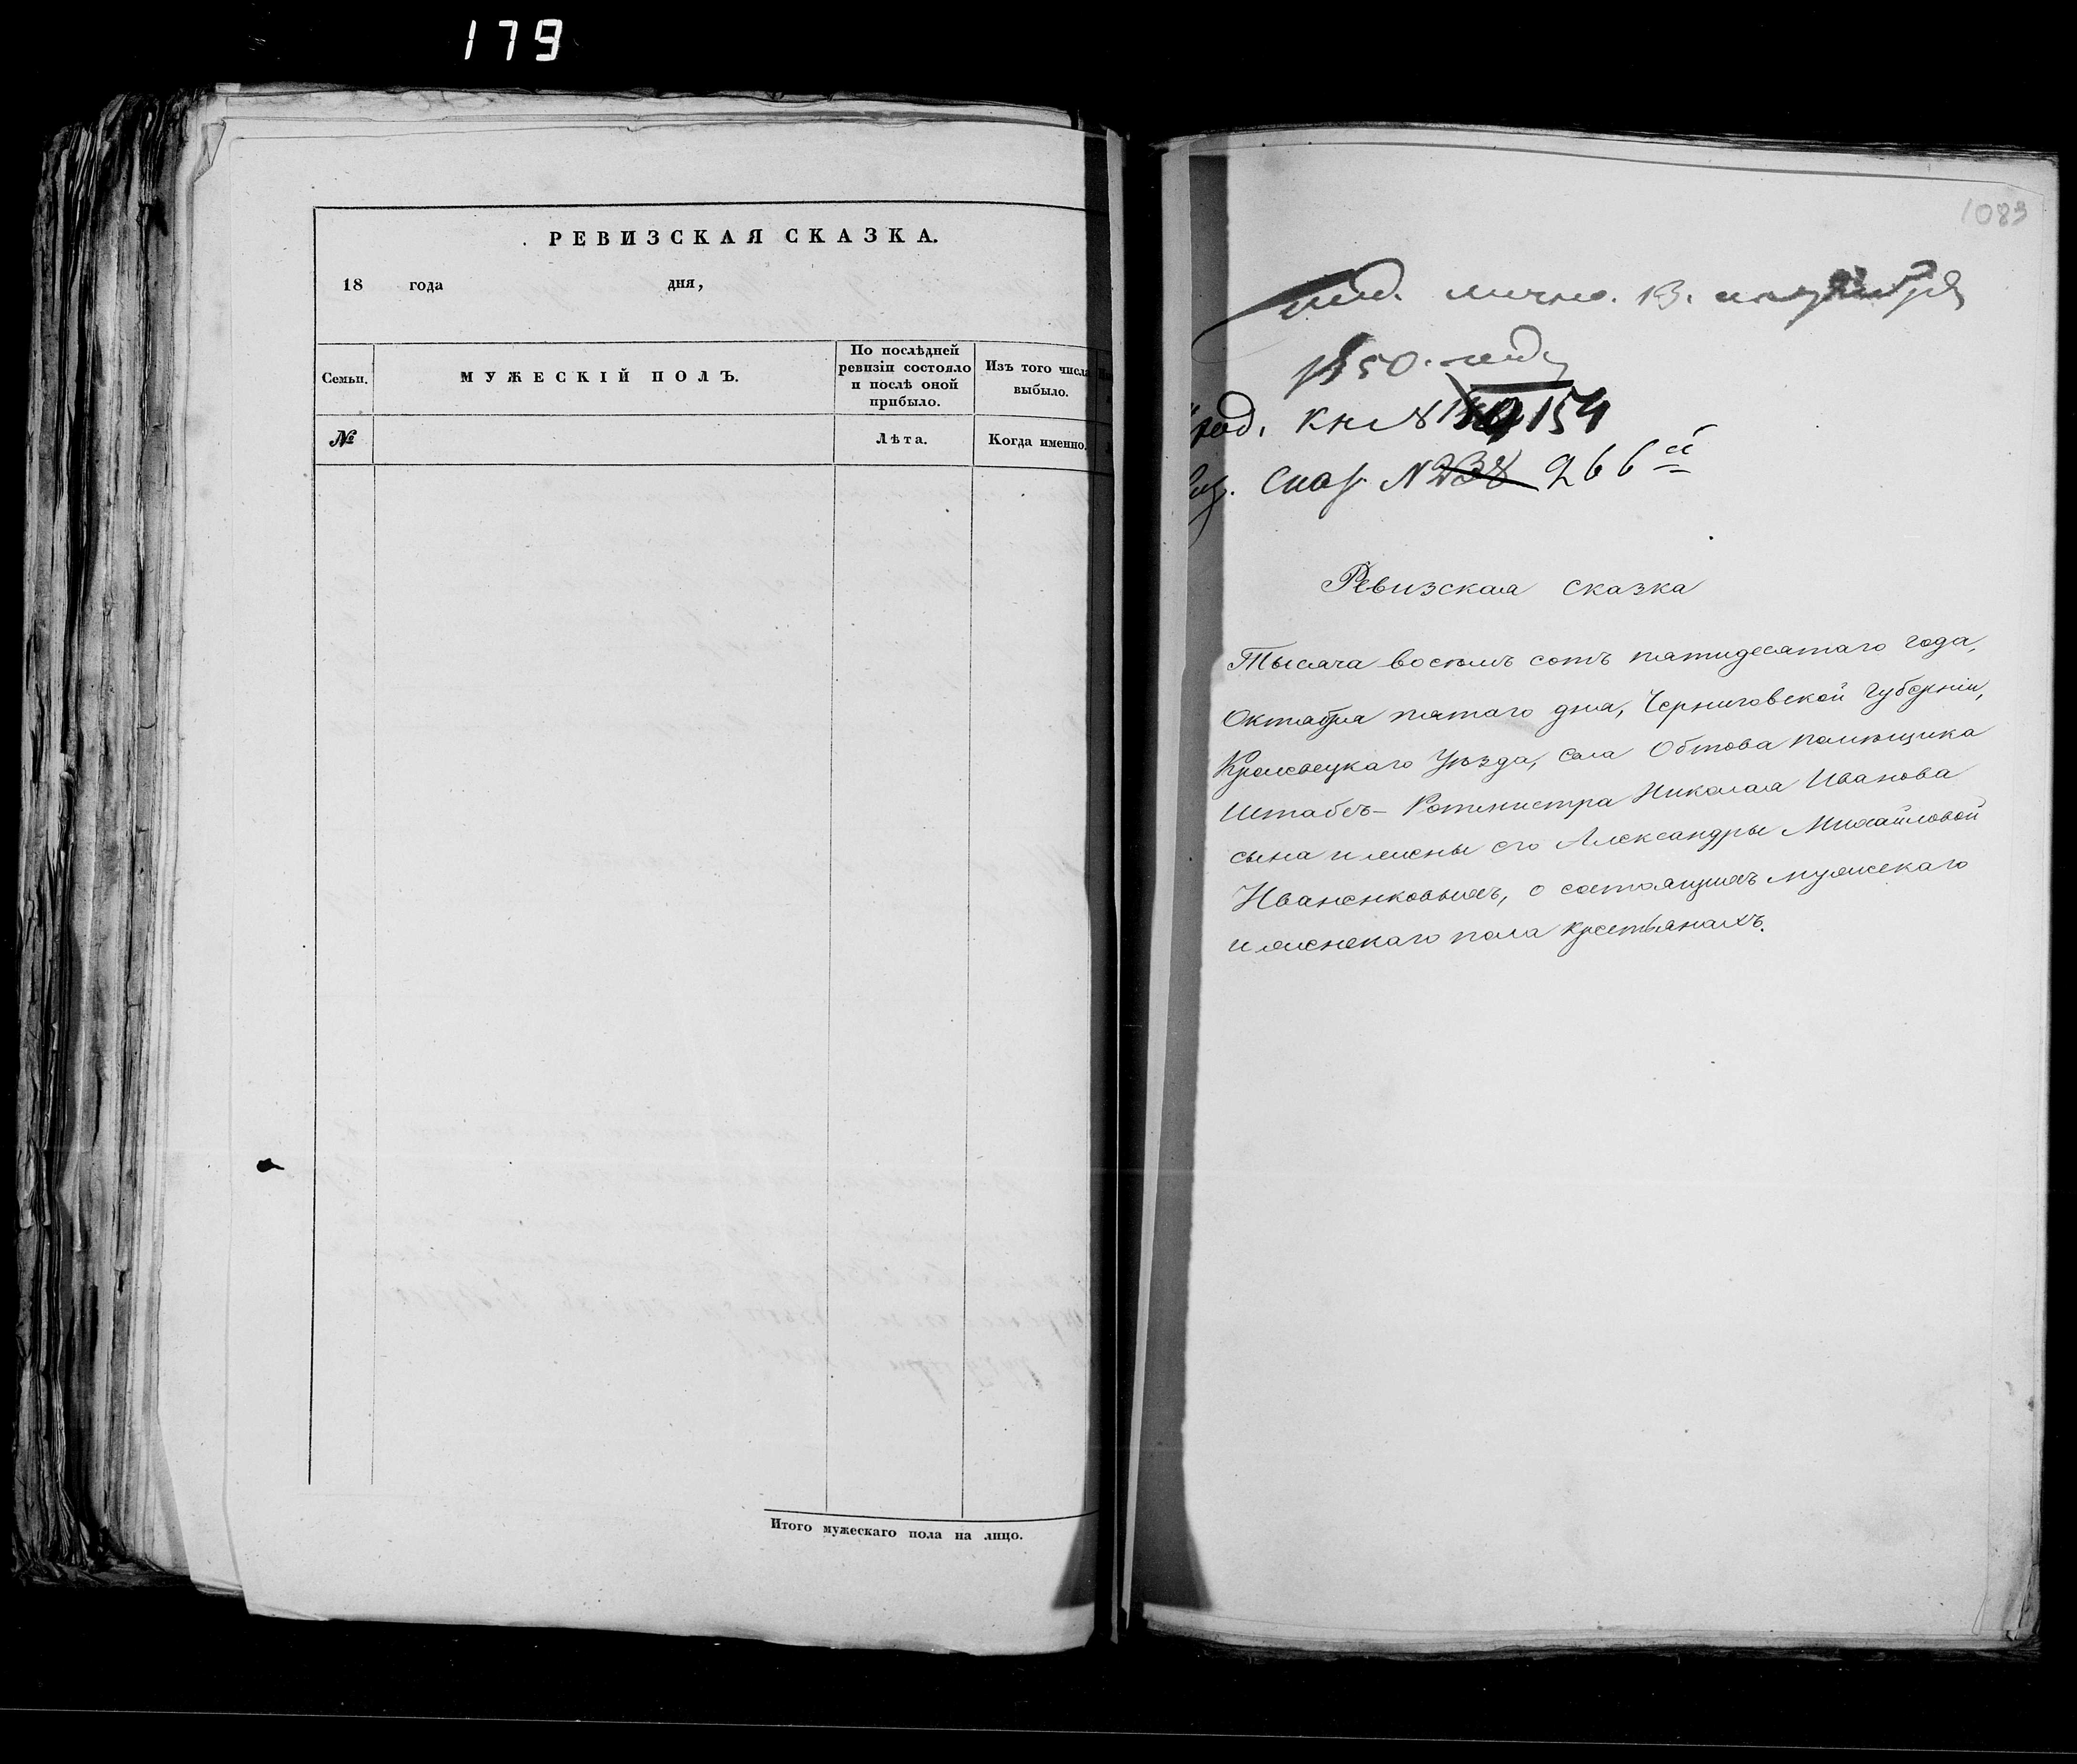 179
РЕВИЗСКАЯ СКАЗКА.
18 года дня,
Семьи.
МУЖЕСКІЙ ПОЛЪ.
По послѣдней
ревизіи состояло
и послѣ оной
прибыло.
Изъ того числа
выбыло.
№
Лѣта.
Когда именно.
Итого мужескаго пола на лицо.
1083
под. лично. 13.
1850. году
кн № 154
Сказ. № 238 266й
Ревизская сказка
Тысяча восемь сотъ пятидесятаго года,
Октября пятаго дня, Черниговской Губерніи,
Кролевецкаго Уѣзда, села Обтова помѣщика
Штабсъ-Ротмистра Николая Иванова
сына и жены его Александры Михайловой
Иваненковыхъ, о состоящихъ мужескаго
и женскаго пола крестьянахъ.